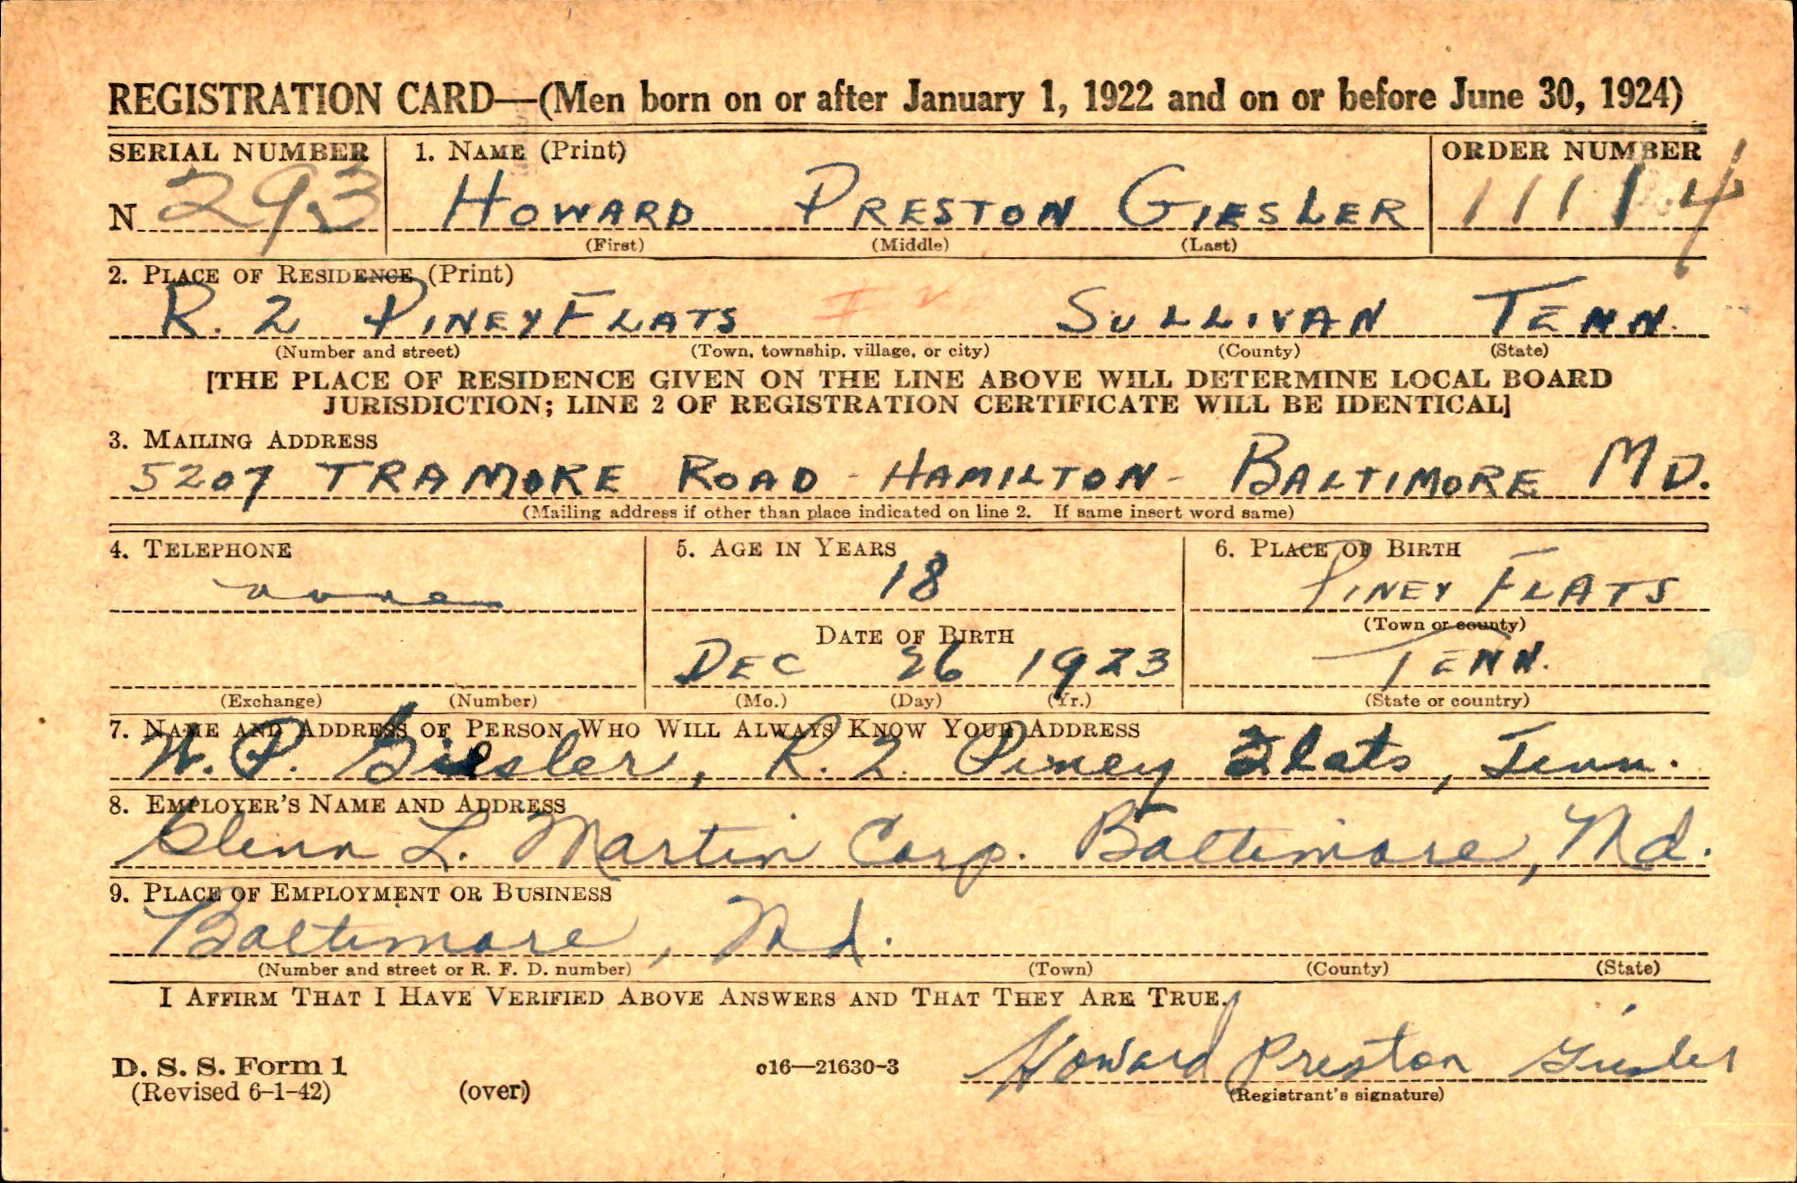 REGISTRATION CARD—(Men born on or after January 1, 1922 and on or before June 30, 1924)
SERIAL NUMBER 1. NAME (Print) ORDER NUMBER
N 293 HOWARD PRESTON GIESLER 11114
(First) (Middle) (Last)
2. PLACE OF RESIDENCE (Print)
R. 2 PINEY FLATS SULLIVAN TENN.
(Number and street) (Town, township, village, or city) (County) (State)
[THE PLACE OF RESIDENCE GIVEN ON THE LINE ABOVE WILL DETERMINE LOCAL BOARD
JURISDICTION; LINE 2 OF REGISTRATION CERTIFICATE WILL BE IDENTICAL]
3. MAILING ADDRESS
5207 TRAMORE ROAD - HAMILTON - BALTIMORE MD.
(Mailing address if other than place indicated on line 2. If same insert word same)
4. TELEPHONE 5. AGE IN YEARS 6. PLACE OF BIRTH
none 18 PINEY FLATS
(Town or county)
DATE OF BIRTH
DEC 26 1923 TENN.
(Exchange) (Number) (Mo.) (Day) (Yr.) (State or country)
7. NAME AND ADDRESS OF PERSON WHO WILL ALWAYS KNOW YOUR ADDRESS
W. P. Giesler, R. 2. Piney Flats, Tenn.
8. EMPLOYER'S NAME AND ADDRESS
Glenn L. Martin Corp. Baltimore, Md.
9. PLACE OF EMPLOYMENT OR BUSINESS
Baltimore, Md.
(Number and street or R. F. D. number) (Town) (County) (State)
I AFFIRM THAT I HAVE VERIFIED ABOVE ANSWERS AND THAT THEY ARE TRUE.
Howard Preston Giesler
D. S. S. Form 1 c16—21630-3
(Revised 6-1-42) (over) (Registrant's signature)